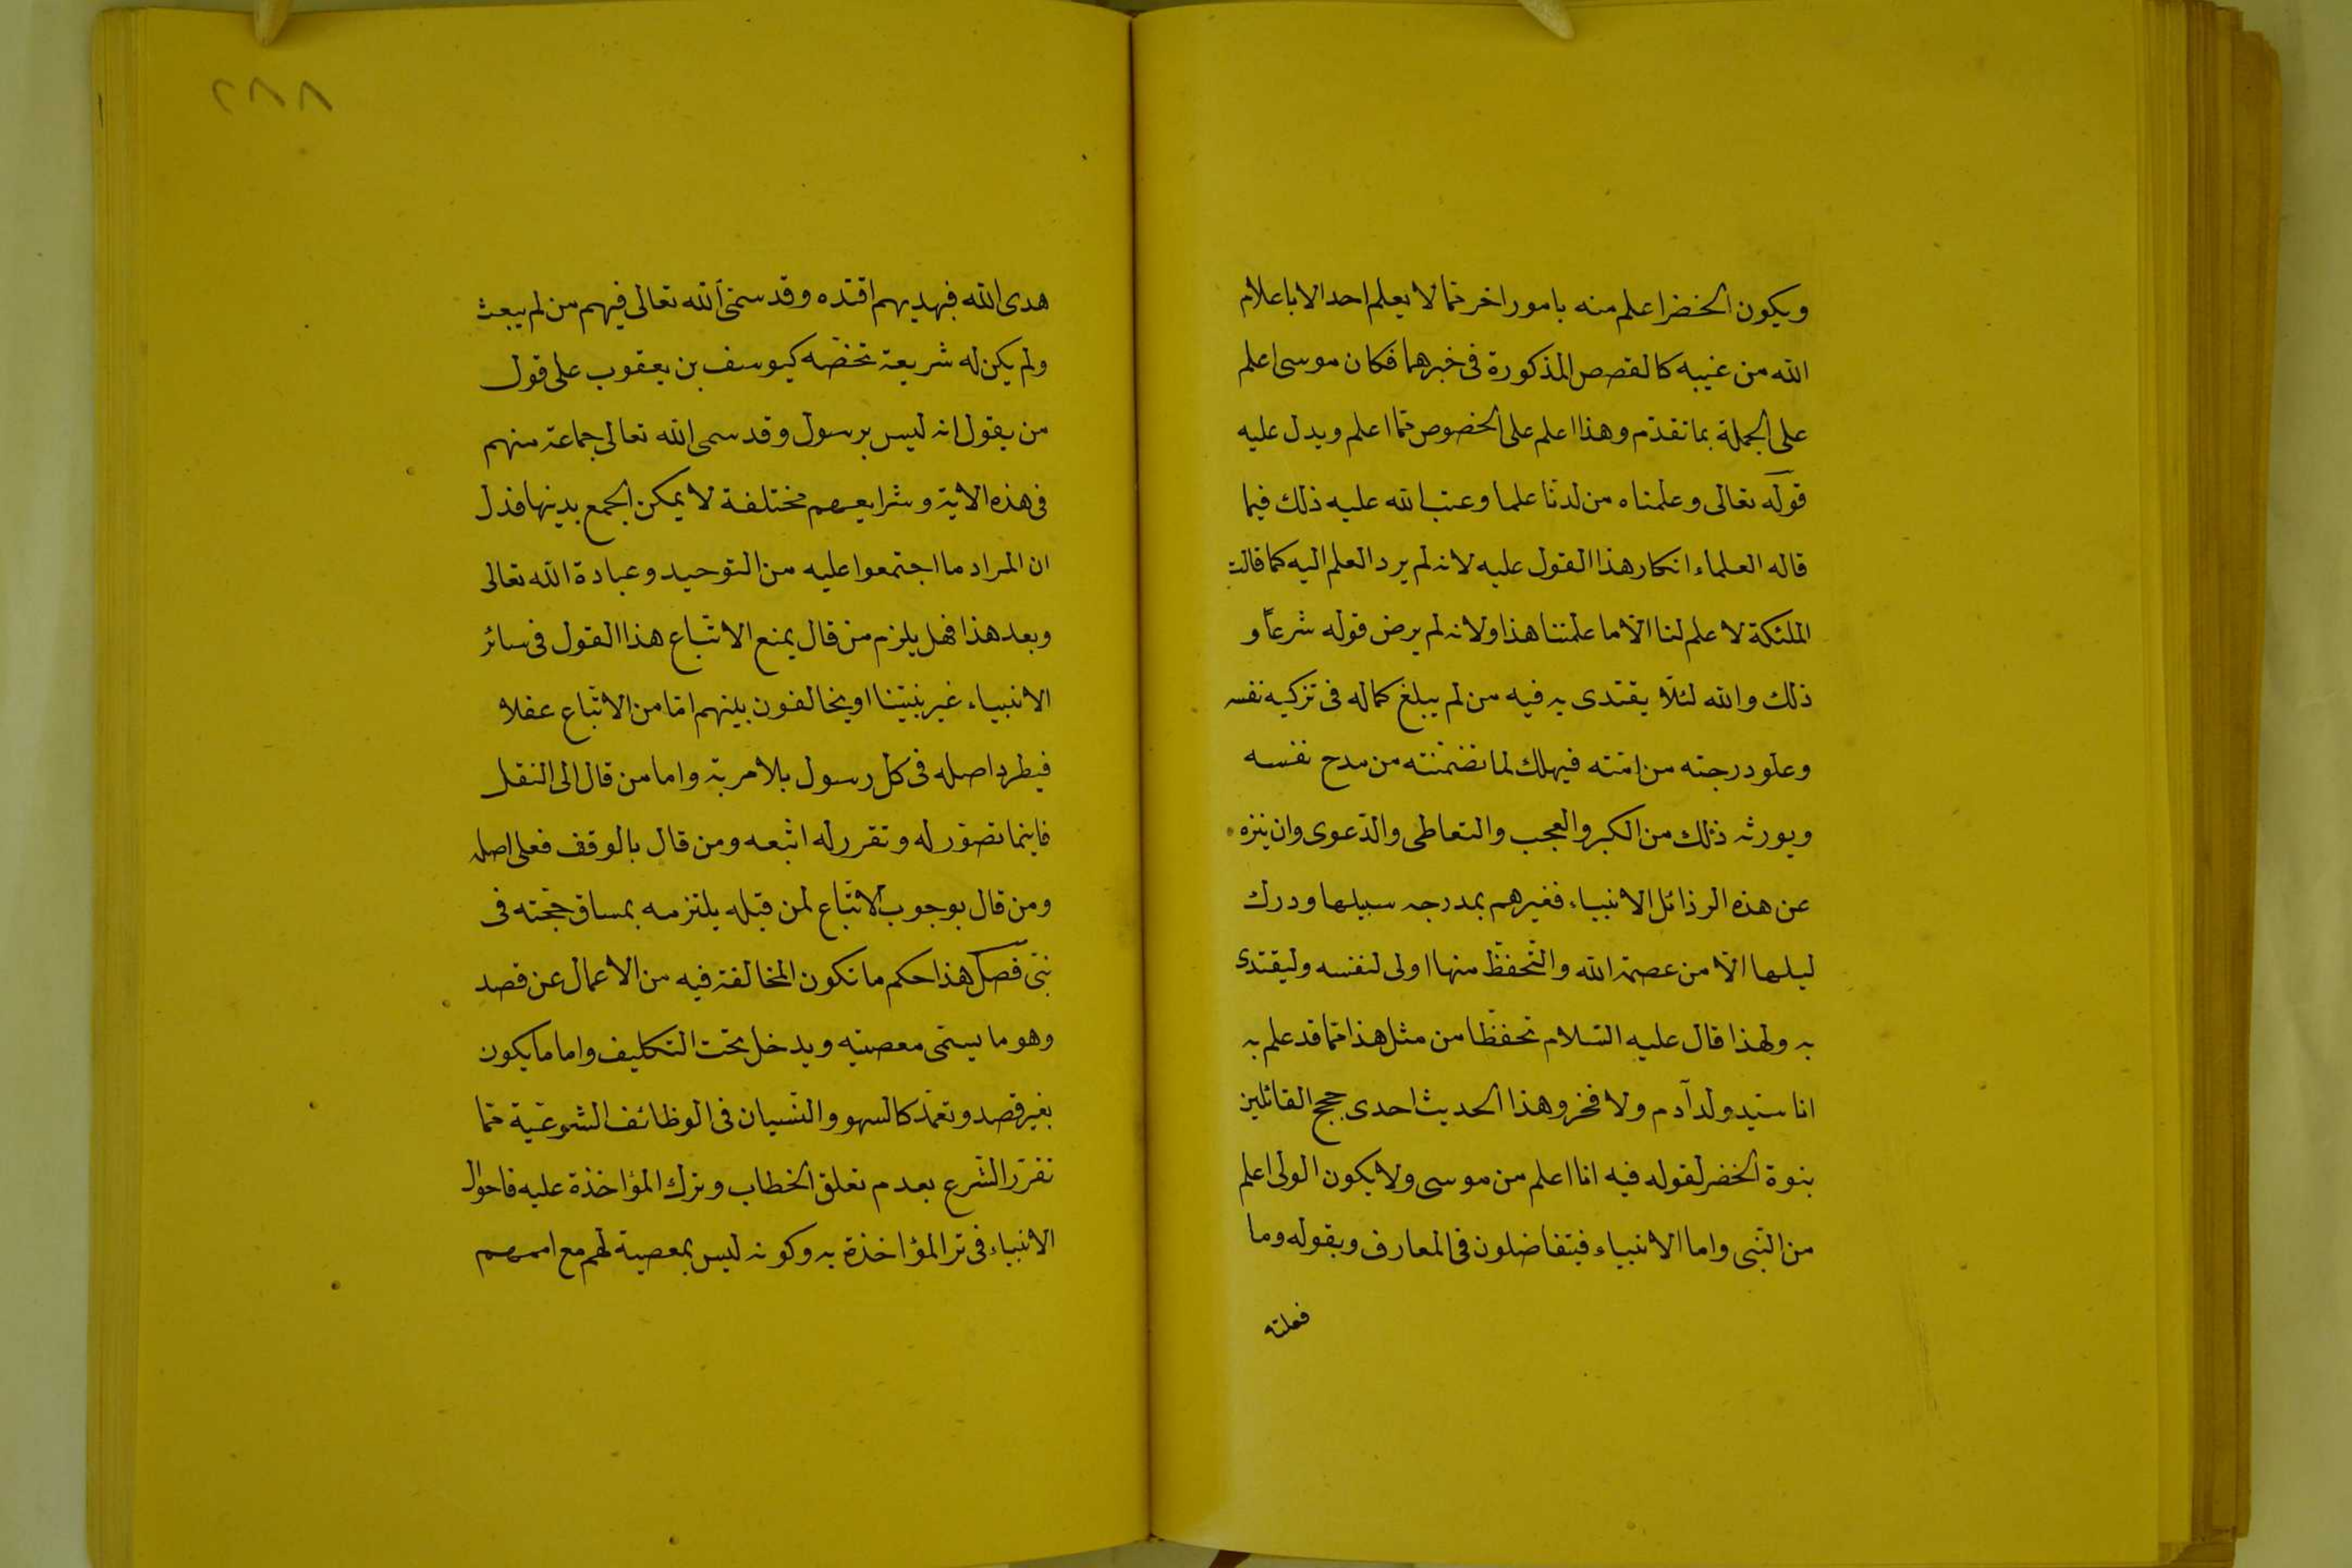 ويكون الخضر اعلم منه بامور اخر مما لا يعلم احد الا باعلام
الله من غيبه كالقصص المذكورة فى خبرهما فكان موسى اعلم
على الجملة بما تقدم وهذا اعلم على الخصوص مما اعلم ويدل عليه
قوله تعالى وعلمناه من لدنا علما وعتب الله عليه ذلك فيما
قاله العلماء انكار هذا القول عليه لانه لم يرد العلم اليه كما قالت
الملئكة لا علم لنا الا ما علمتنا هذا ولانه لم يرض قوله شرعاً و
ذلك والله لئلا يقتدى به فيه من لم يبلغ كماله فى تزكيه نفسه
وعلو درجته من امته فيهلك لما تضمنته من مدح نفسه
ويورثه ذلك من الكبر والعجب والتعاطى والدعوى وان نزه
عن هذه الرذائل الانبياء فغيرهم بمدرجه سبيلها ودرك
ليلها الا من عصمة الله والتحفظ منها اولى لنفسه وليقتدى
به ولهذا قال عليه السلام تحفظا من مثل هذا مما قد علم به
انا سيد ولد آدم ولا فخر وهذا الحديث احدى حجج القائلين
بنبوة الخضر لقوله فيه انا اعلم من موسى ولا يكون الولى اعلم
من النبى واما الانبياء فيتفاضلون فى المعارف وبقوله وما
فعلته
٢٨٨
هدى الله فبهديهم اقتده وقد سمى الله تعالى فيهم من لم يبعث
ولم يكن له شريعة تخصه كيوسف بن يعقوب على قول
من يقول انه ليس برسول وقد سمى الله تعالى جماعة منهم
فى هذه الاية وشرايعهم مختلفة لا يمكن الجمع بينها فدل
ان المراد ما اجتمعوا عليه من التوحيد وعبادة الله تعالى
وبعد هذا فهل يلزم من قال يمنع الاتباع هذا القول فى سائر
الانبياء غير نبينا او يخالفون بينهم اما من الاتباع عقلا
فيطرد اصله فى كل رسول بلا مرية واما من قال الى النقل
فاينما تصور له وتقرر له اتبعه ومن قال بالوقف فعلى اصله
ومن قال بوجوب الاتباع لمن قبله يلتزمه بمساق حجته فى
نبى فصل هذا حكم ما تكون المخالفة فيه من الاعمال عن قصد
وهو ما يسمى معصيته ويدخل تحت التكليف واما ما يكون
بغير قصد وتعمد كالسهو والنسيان فى الوظائف الشرعية مما
تقرر الشرع بعدم تعلق الخطاب وترك المؤاخذة عليه فاحوال
الانبياء فى تر المؤاخذة به وكونه ليس بمعصية لهم مع اممهم